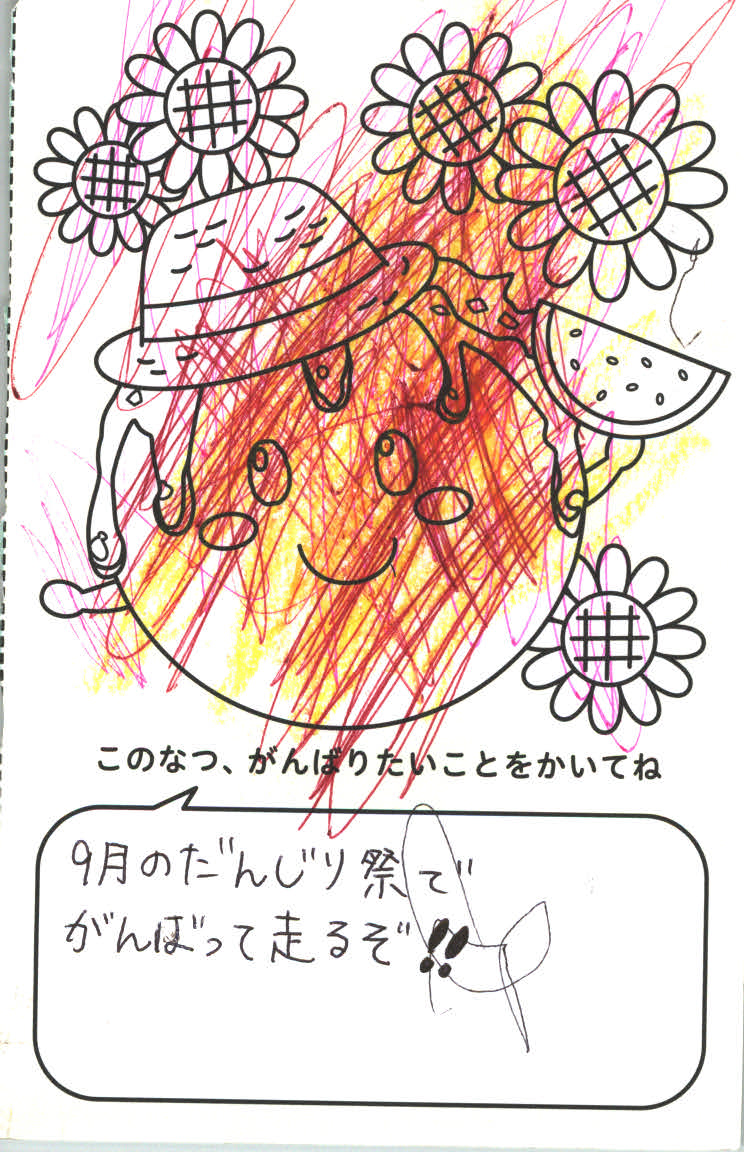 このなつ、がんばりたいことをかいてね
9月のだんじり祭で
がんばって走るぞ!!